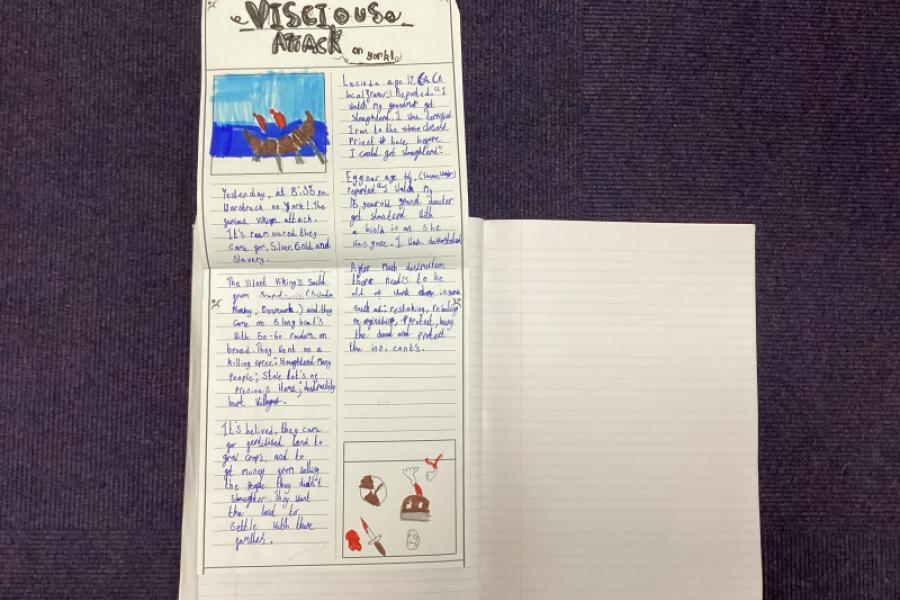 VISCIOUS
ATTACK on york!
Yesterday, at 8:35 pm.
on York! The
furious vikings attack.
It's roumoured they
came for, Silver, Gold and
Slavery.
The Vilent Viking's saild
from Scand (Sweden,
Norway, Denmark.) and they
came on 6 long boat's
with 50-60 raiders on
broad. They Went on a
killing spree: Slaughterd Many
People; Stole Lot's of
precious items;
burt Villages.
It's belived, they came
for fertilised land to
grow crops, and to
get money from selling
the people they didn't
Slaughter. They want
the land to
Settle with there
famlies.
Lucinda age 17, (A
local) Reported "I
watch my get
slaughterd, I was terrified
I ran to the closest
Priest before
I could get slaughterd".
Eggbar age 67,
reported "I watch my
15 year old grand dauter
get with
a as she
was gone. I was
After Much destruction
there needs to be
alt of work done
Such as: restoking,
bury
the dead and protect
the